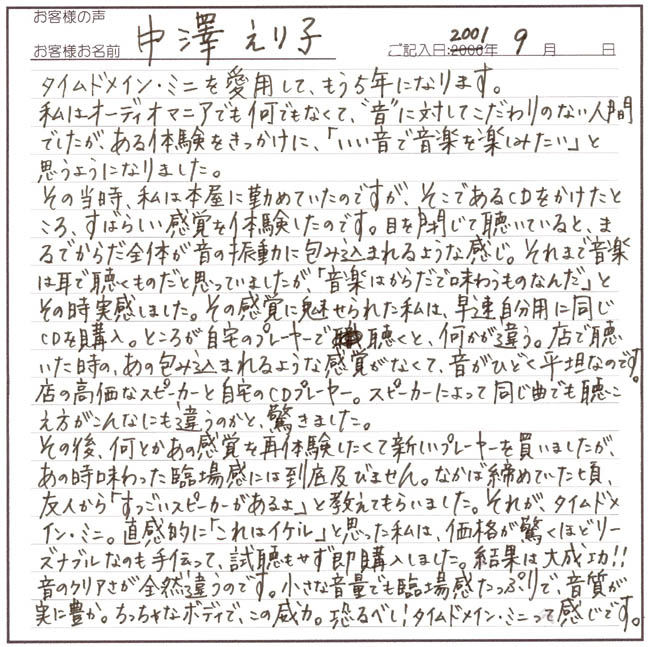 お客様の声
お客様お名前 中澤えり子 ご記入日:2000年 2001 9月 日
タイムドメイン・ミニを愛用して、もう5年になります。
私はオーディオマニアでも何でもなくて、"音"に対してこだわりのない人間
でしたが、ある体験をきっかけに、「いい音で音楽を楽しみたい」と
思うようになりました。
その当時、私は本屋に勤めていたのですが、そこであるCDをかけたと
ころ、すばらしい感覚を体験したのです。目を閉じて聴いていると、ま
るでからだ全体が音の振動に包み込まれるような感じ。それまで音楽
は耳で聴くものだと思っていましたが、「音楽はからだで味わうものなんだ」と
その時実感しました。その感覚に魅せられた私は、早速自分用に同じ
CDを購入。ところが自宅のプレーヤーで聴くと、何かが違う。店で聴
いた時の、あの包み込まれるような感覚がなくて、音がひどく平坦なのです。
店の高価なスピーカーと自宅のCDプレーヤー。スピーカーによって同じ曲でも聴こ
え方がこんなにも違うのかと、驚きました。
その後、何とかあの感覚を再体験したくて新しいプレーヤーを買いましたが、
あの時味わった臨場感には到底及びません。なかば諦めていた頃、
友人から「すっごいスピーカーがあるよ」と教えてもらいました。それが、タイムドメ
イン・ミニ。直感的に「これはイケル」と思った私は、価格が驚くほどリー
ズナブルなのも手伝って、試聴もせず即購入しました。結果は大成功!!
音のクリアさが全然違うのです。小さな音量でも臨場感たっぷりで、音質が
実に豊か。ちっちゃなボディで、この威力。恐るべし!タイムドメイン・ミニって感じです。